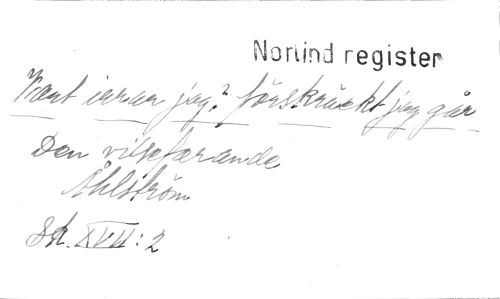 Norlind register
Hvart irrar jag? förskräckt jag går
Den vilsefarande
Åhlström
Sk. XVII: 2